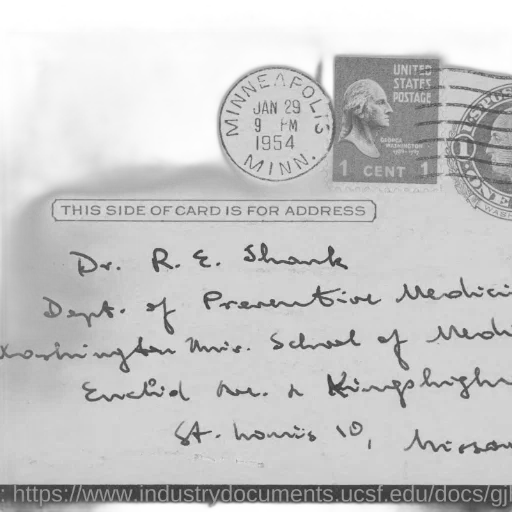 MINNEAPOLIS
JAN 29
9 PM
1954
MINN.
UNITED
STATES
POSTAGE
GEORGE
WASHINGTON
1 CENT 1
1
THIS SIDE OF CARD IS FOR ADDRESS
Dr. R. E. Shank
Dept. of Preventive Medici
Washington Univ. School of Medi
Euclid Ave. & Kingshighw
St. Louis 10, Missou
: https://www.industrydocuments.ucsf.edu/docs/gjl